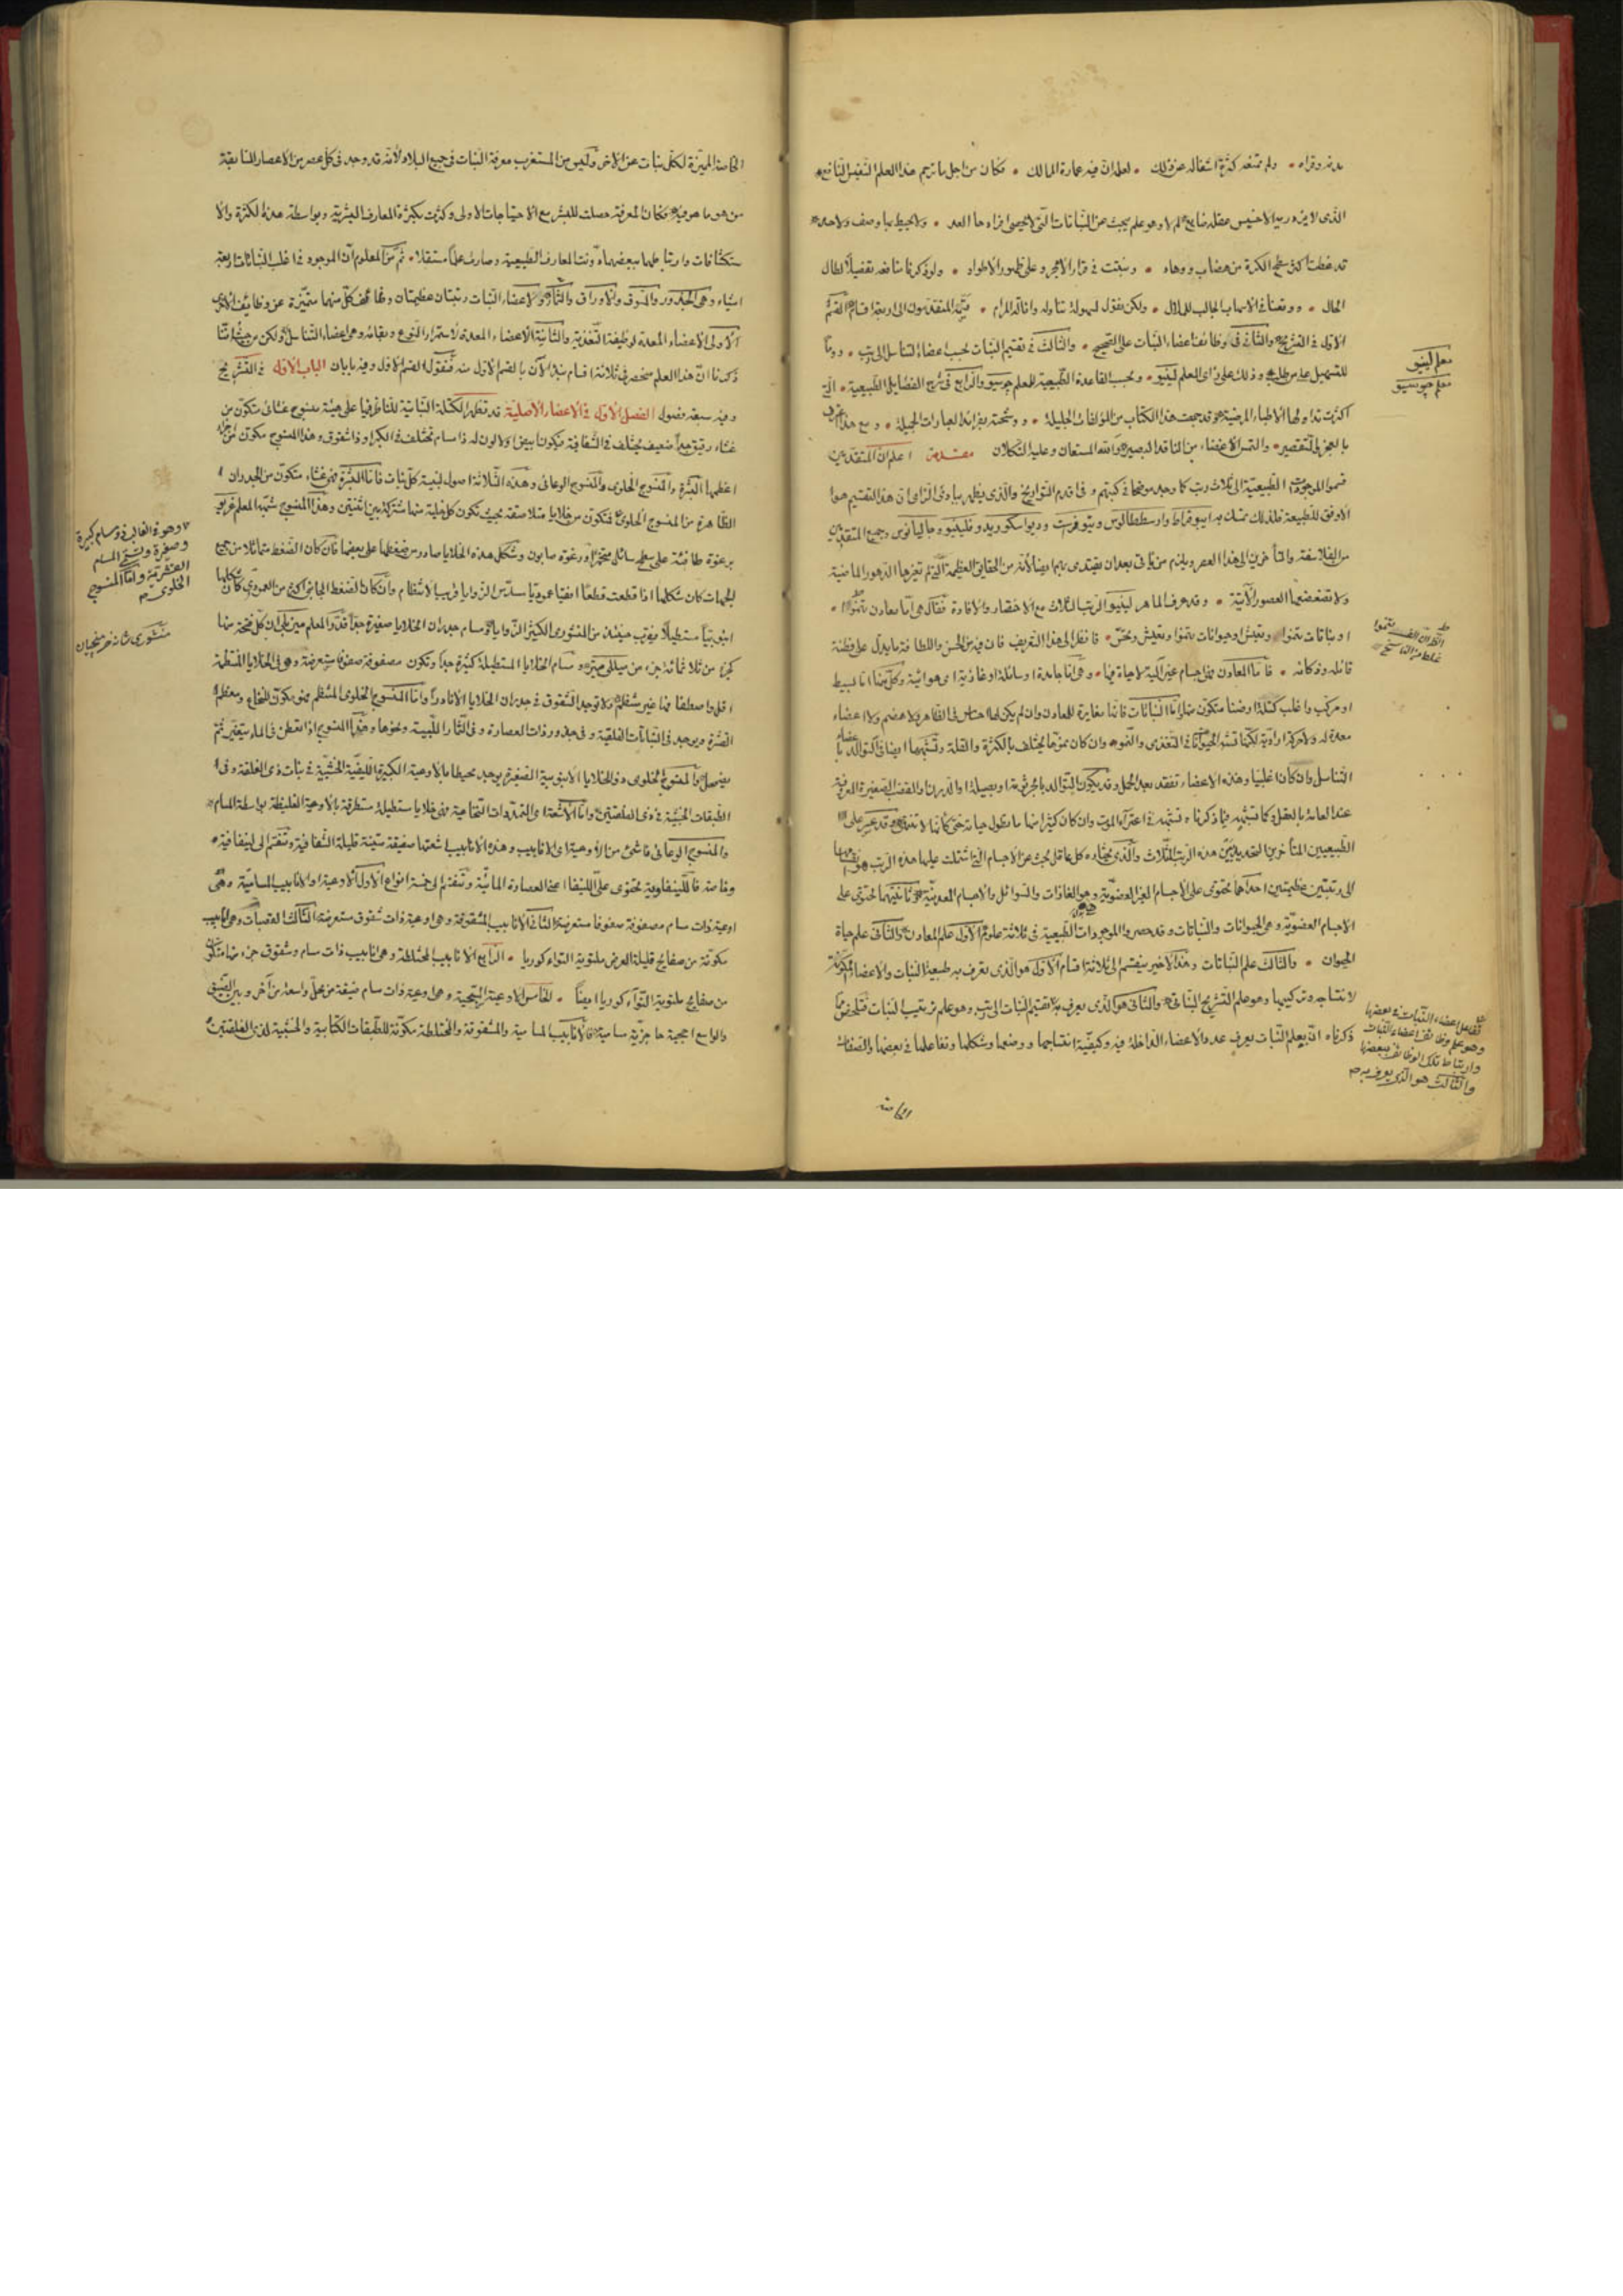 بدنه وقراه ۰ ولم تمنعه كثرة اشغاله عن ذلك ۰ لعلمه ان فيه عمارة الممالك ۰ فكان من اجل ما ترجم هذا العلم النفيس النافع
الذى لا يزدريه الا خسيس عقله ضايع لم لا وهو علم يبحث عن النباتات التى لا يحصى افرادها العد ۰ ولا يحيط بها وصف ولا حد
قد غطت اكثر سطح الكرة من هضاب ووهاد ۰ ونبتت فى قرار الابحر وعلى ظهور الاطواد ۰ ولو ذكرنا منافعه تفصيلا لطال
الحال ۰ ووقعنا فى الاسهاب الجالب للملال ۰ ولكن نقول لسهولة تناوله وانالة المرام ۰ قسمه المتقدمون الى اربعة اقسام القسم
الاول فى التشريح والثانى فى وظائف اعضاء النبات على الصحيح ۰ والثالث فى تقسيم النبات بحسب اعضاء التناسل الى رتب ۰
للتسهيل على من طلب وذلك على رأى المعلم لينيو ۰ وبحسب القاعدة الطبيعية للمعلم جوسيو والرابع فى شرح الفصايل الطبيعية ۰ التى
اكثرت تداولها الاطباء المرضية وقد جمعت هذا الكتاب من المؤلفات الجليلة ۰ ووشحته بفرائد العبارات الجميلة ۰ ومع هذا
بالعجز والتقصير ۰ والتمس الاغضاء من الناقد البصير والله المستعان وعليه التكلان مقدمة اعلم ان المتقدمين
قسموا الموجودات الطبيعية الى ثلاث رتب كما وجد موضحا فى كتبهم وفى اقدم التواريخ والذى يظهر ببادئ الرأى ان هذا التقسيم هو
الاوفق للطبيعة فلذلك تمسك به ايبوقراط وارسططاليس وتيوفرست وديوسكوريد و وجاليانوس وجميع المتقدمين
من الفلاسفة والمتأخرين الى هذا العصر ويلزم من يأتى بعد ان يقتدى بهم ايضا لانه من الحقايق العظيمة التى لم تغيرها الدهور الماضية
ولا تضعضعها العصور الآتية ۰ وقد عرف الماهر لينيو الرتب الثلاث مع الاختصار والافادة فقال هى اما معادن تنموا ۰
او نباتات تنموا وتعيش او حيوانات تنموا وتعيش وتحس ۰ فانظر الى هذا التعريف فان فيه من الحسن واللطافة ما يدل على فطنة
قائله وذكائه ۰ فاما المعادن فهى اجسام غير آلية لا حياة فيها ۰ وهى اما جامدة او سائلة او غازية اى هوائية وكل منها اما بسيط
او مركب واغلب كتلة ارضنا متكون منها واما النباتات فانها مغايرة للمعادن وان لم يكن لها احساس فى الظاهر ولا هضم ولا اعضاء
معدة له ولا حركة ارادية لكنها تشبه الحيوانات فى التغذى والنمو وان كان نموها يختلف بالكثرة والقلة وتشبهها ايضا فى التوالد
التناسل وان كان اغلبيا وهذه الاعضاء تفقد بعد الحمل وقد يكون التوالد بالجرثومة او بصيلة او الدرنات والقضب الصغيرة المعروفة
عند العامة بالعقل وكما تشبهه فيما ذكرناه تشبهه فى اعتراء الموت وان كان كثير منها ما تطول حياته حتى كأنها لا تعدم وقد عسر على
الطبيعيين المتأخرين التحديد بين هذه الرتب الثلاث والذى يختاره كل عاقل يبحث عن الاجسام التى اشتملت عليها هذه الرتب هو تقسيمها
الى رتبتين عظيمتين احداهما تحتوى على الاجسام الغير العضوية وهى الغازات والسوائل والاجسام المعدنية وثانيتهما تحتوى على
الاجسام العضوية وهى الحيوانات والنباتات وقد حصروا الموجودات الطبيعية فى ثلاثة علوم الاول علم المعادن والثانى علم حياة
الحيوان ۰ والثالث علم النباتات وهذا الاخير ينقسم الى ثلاثة اقسام الاول هو الذى يعرف به طبيعة النبات والاعضاء المكونة
لانتاجه وتركيبها وهو علم التشريح النباتى والثانى هو الذى يعرف به تقسيم النبات الى رتب وهو علم ترتيب النبات فتلخص مما
ذكرناه ان بعلم النبات يعرف عدد الاعضاء الداخلة فيه وكيفية انتساجها ووضعها وشكلها وتفاعلها فى بعضها والصفات
الخاصة
معلم لينيو
معلم جوسيو
ط
الظاهر ان الف تنموا
غلط من الناسخ
تفاعل اعضاء النبات فى بعضها
وهو علم وظائف اعضاء النبات
وارتباط تلك الوظائف ببعضها
والثالث هو الذى يعرف به ص
الخاصة المميزة لكل نبات عن الآخر وليس من المستغرب معرفة النبات فى جميع البلاد لانه قد وجد فى كل عصر من الاعصار السابقة
من هو ماهر فيه فكان المعرفة حصلت للبشر مع الاحتياجات الاولى وكثرت بكثرة المعارف البشرية وبواسطة هذه الكثرة والا
ستكشافات وارتباطها ببعضها دونت المعارف الطبيعية وصارت علما مستقلا ۰ ثم من المعلوم ان الموجود فى اغلب النباتات اربعة
اشياء وهى الجذور والسوق والاوراق والثمار ولاعضاء النبات رتبتان عظيمتان وظائف كل منهما متميزة عن وظائف الاخرى
الاولى الاعضاء المعدة لوظيفة التغذية والثانية الاعضاء المعدة لاستمرار النوع وبقائه وهى اعضاء التناسل ولكن من حيث اننا
ذكرنا ان هذا العلم منحصر فى ثلاثة اقسام نبدأ الآن بالقسم الاول منه فنقول القسم الاول وفيه بابان الباب الاول فى التشريح
وفيه سبعة فصول الفصل الاول فى الاعضاء الاصلية قد تظهر الكتلة النباتية للناظر فيها على هيئة منسوج غشائى متكون من
غشاء رقيق جدا ضعيف يختلف فى الشفافية فيكون ابيض او لا لون له ذا مسام تختلف فى الكبر او ذا شقوق وهذا المنسوج مكون من
اعظمها البشرة والمنسوج الخلوى والمنسوج الوعائى وهذه الثلاثة اصول لبنية كل نبات فاما البشرة فهى غشاء متكون من الجدران
الظاهرة من المنسوج الخلوى فتتكون من خلايا متلاصقة بحيث تكون كل خلية منها مشتركة بين اثنتين وهذا المنسوج شبهه المعلم
برغوة طافئة على سطح سائل متخمر او رغوة صابون وشكل هذه الخلايا صادر من ضغطها على بعضها فان كان الضغط متماثلا من جميع
الجهات كان شكلها اذا قطعت قطعا افقيا عموديا مسدس الزوايا قريب الانتظام وان كان الضغط الجانبى اكثر من العمودى كان شكلها
انبوبيا مستطيلا يقرب حينئذ من المنشورى الكثير الزوايا ومسام جدران الخلايا صغيرة جدا قدر المعلم ان كل فتحة منها
كجزء من ثلاثمائة جزء من ميلمتر ومسام الخلايا المستطيلة كثيرة جدا وتكون مصفوفة صفوفا مستعرضة وهى فى الخلايا المنتظمة
اقل واصطفافها غير منتظم ولا توجد الشقوق فى جدران الخلايا الا نادرا واما المنسوج الخلوى المنتظم فهو يكون النخاع ومعظم
القشرة ويوجد فى النباتات الفلقية وفى جذور ذات العصارة وفى الثمار اللبية ونحوها وهذا المنسوج اذا تعطن فى الماء يتغير ثم
يضمحل والمنسوج الخلوى ذو الخلايا الانبوبية الصغيرة يوجد محيطا بالاوعية الكبيرة الليفية الخشبية فى نبات ذى الفلقة وفى
الطبقات الخشبية فى ذى الفلقتين واما الاشعة اى التمددات النخاعية فهى خلايا مستطيلة متطرفة بالاوعية الغليظة بواسطة المسام
والمنسوج الوعائى ناشئ من الاوعية اى الانابيب وهذه الانابيب اشعتها صفيقة متينة قليلة الشفافية وتنقسم الى لينفاوية
وخاصة فاللينفاوية تحتوى على اللينفا اعنى العصارة المائية وتنقسم الى خمسة انواع الاول الاوعية او الانابيب المسامية وهى
اوعية ذات مسام مصفوفة صفوفا مستعرضة الثانى الانابيب المشقوقة وهى اوعية ذات شقوق مستعرضة الثالث القصبات وهى انابيب
مكونة من صفايح قليلة العرض ملتوية التواء كوريا ۰ الرابع الانابيب المختلطة وهى انابيب ذات مسام وشقوق جزء منها متكون
من صفايح ملتوية التواء كوريا ايضا ۰ الخامس الاوعية السبحية وهى اوعية ذات مسام ضيقة من محل واسعة من آخر وبين الضيق
والواسع احجبة حاجزية مسامية فالانابيب المسامية والمشقوقة والمختلطة مكونة للطبقات الكتابية والخشبية لذى الفلقتين
وهو فى الغالب ذو مسام كبيرة
وصغيرة وتسمى المسام
القشرية واما المنسوج
الخلوى ص